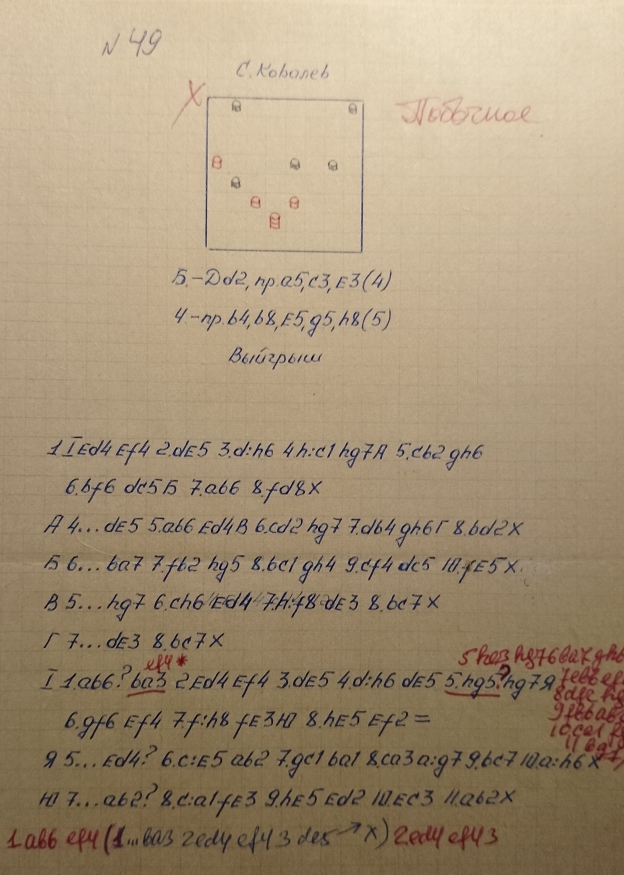 N 49
С. Ковалев
X
Побочное
Б.-Дd2, пр. a5, c3, E3 (4)
Ч.-пр. b4, b8, E5, g5, h8 (5)
Выйгрыш
1 I Ed4 Ef4 2. dE5 3. d:h6 4 h:c1 hg7 A 5. cb2 gh6
6. bf6 dc5 Б 7. ab6 8. fd8 X
A 4... dE5 5. ab6 Ed4 B 6. cd2 hg7 7. db4 gh6 Г 8. bd2 X
Б 6... ba7 7. fb2 hg5 8. bc1 gh4 9. cf4 dc5 10. fE5 X
В 5... hg7 6. ch6 Ed4 7. h:f8 dE3 8. bc7 X
Г 7... dE3 8. bc7 X
ef4*
I 1. ab6? ba3 2 Ed4 Ef4 3. dE5 4. d:h6 dE5 5. hg5? hg7 Я
6. gf6 Ef4 7. f:h8 fE3 Ю 8. hE5 Ef2 =
Я 5... Ed4? 6. c:E5 ab2 7. gc1 ba1 8. ca3 a:g7 9. bc7 10. a:h6 X
Ю 7... ab2? 8. c:a1 fE3 9. hE5 Ed2 10. Ec3 11. ab2 X
1 ab6 ef4 (1... ba3 2 ed4 ef4 3 de5 → X) 2 ed4 ef4 3